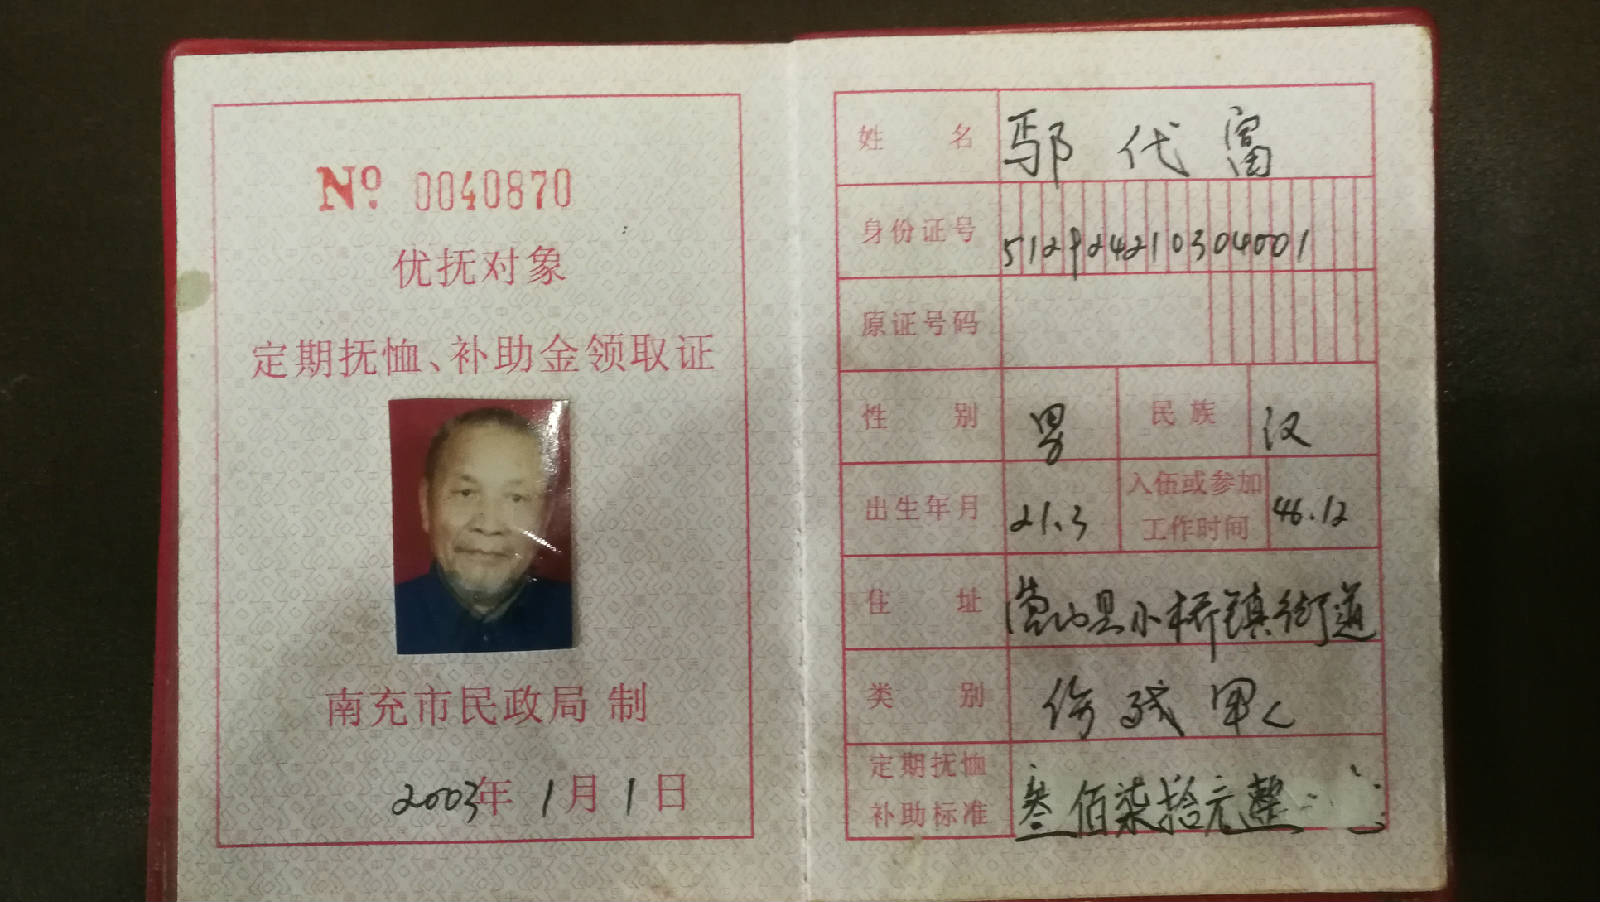 No 0040870
优抚对象
定期抚恤、补助金领取证
南充市民政局 制
2003年 1月 1日
姓 名 鄢代富
身份证号 512924210304001
原证号码
性 别 男 民 族 汉
出生年月 21.3 入伍或参加工作时间 46.12
住 址 营山县小桥镇街道
类 别 伤残军人
定期抚恤补助标准 叁佰柒拾元整